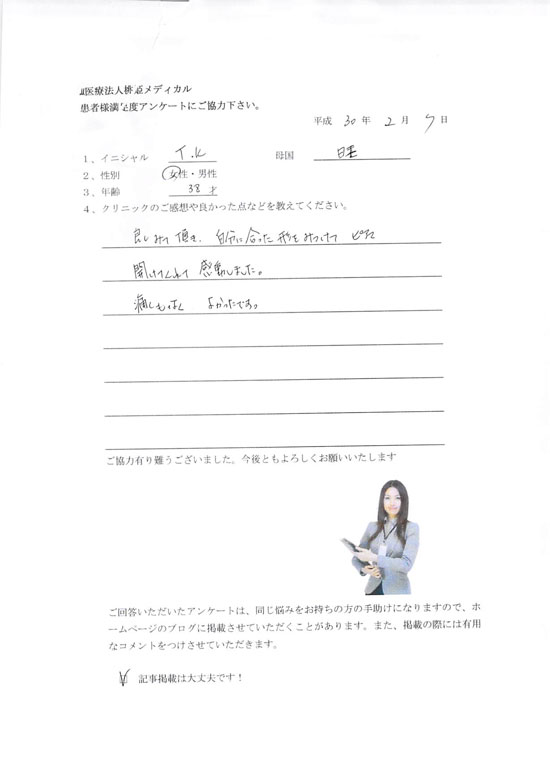 医療法人桃亞メディカル
患者様満足度アンケートにご協力下さい。
平成 30 年 2 月 7 日
1、イニシャル T.K 母国 日本
2、性別 女性・男性
3、年齢 38 才
4、クリニックのご感想や良かった点などを教えてください。
良くみて頂き、自分に合った形をみつけて ピアス
開けてくれて 感動しました。
痛くもなく よかったです。
ご協力有り難うございました。今後ともよろしくお願いいたします
ご回答いただいたアンケートは、同じ悩みをお持ちの方の手助けになりますので、ホ
ームページのブログに掲載させていただくことがあります。また、掲載の際には有用
なコメントをつけさせていただきます。
記事掲載は大丈夫です！